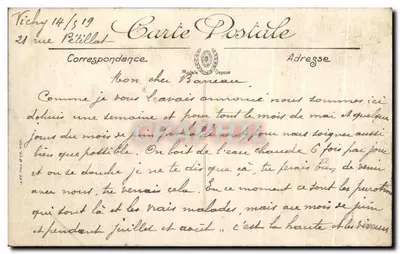 Vichy 14/5 19
21 rue Pétillat
Carte Postale
Correspondance
Adresse
Modèle Déposé
Mon cher Baneau
Comme je vous l'avais annoncé nous sommes ici
depuis une semaine et pour tout le mois de mai et quelques
jours du mois de juin pour nous soigner aussi
bien que possible. On boit de l'eau chaude 6 fois par jour
et on se douche je ne te dis que ça, tu ferais bien, de venir
avec nous, tu verrais cela. En ce moment ce sont les
qui sont là et les vrais malades, mais au mois de juin
et pendant juillet et août.. c'est la haute et les viveurs